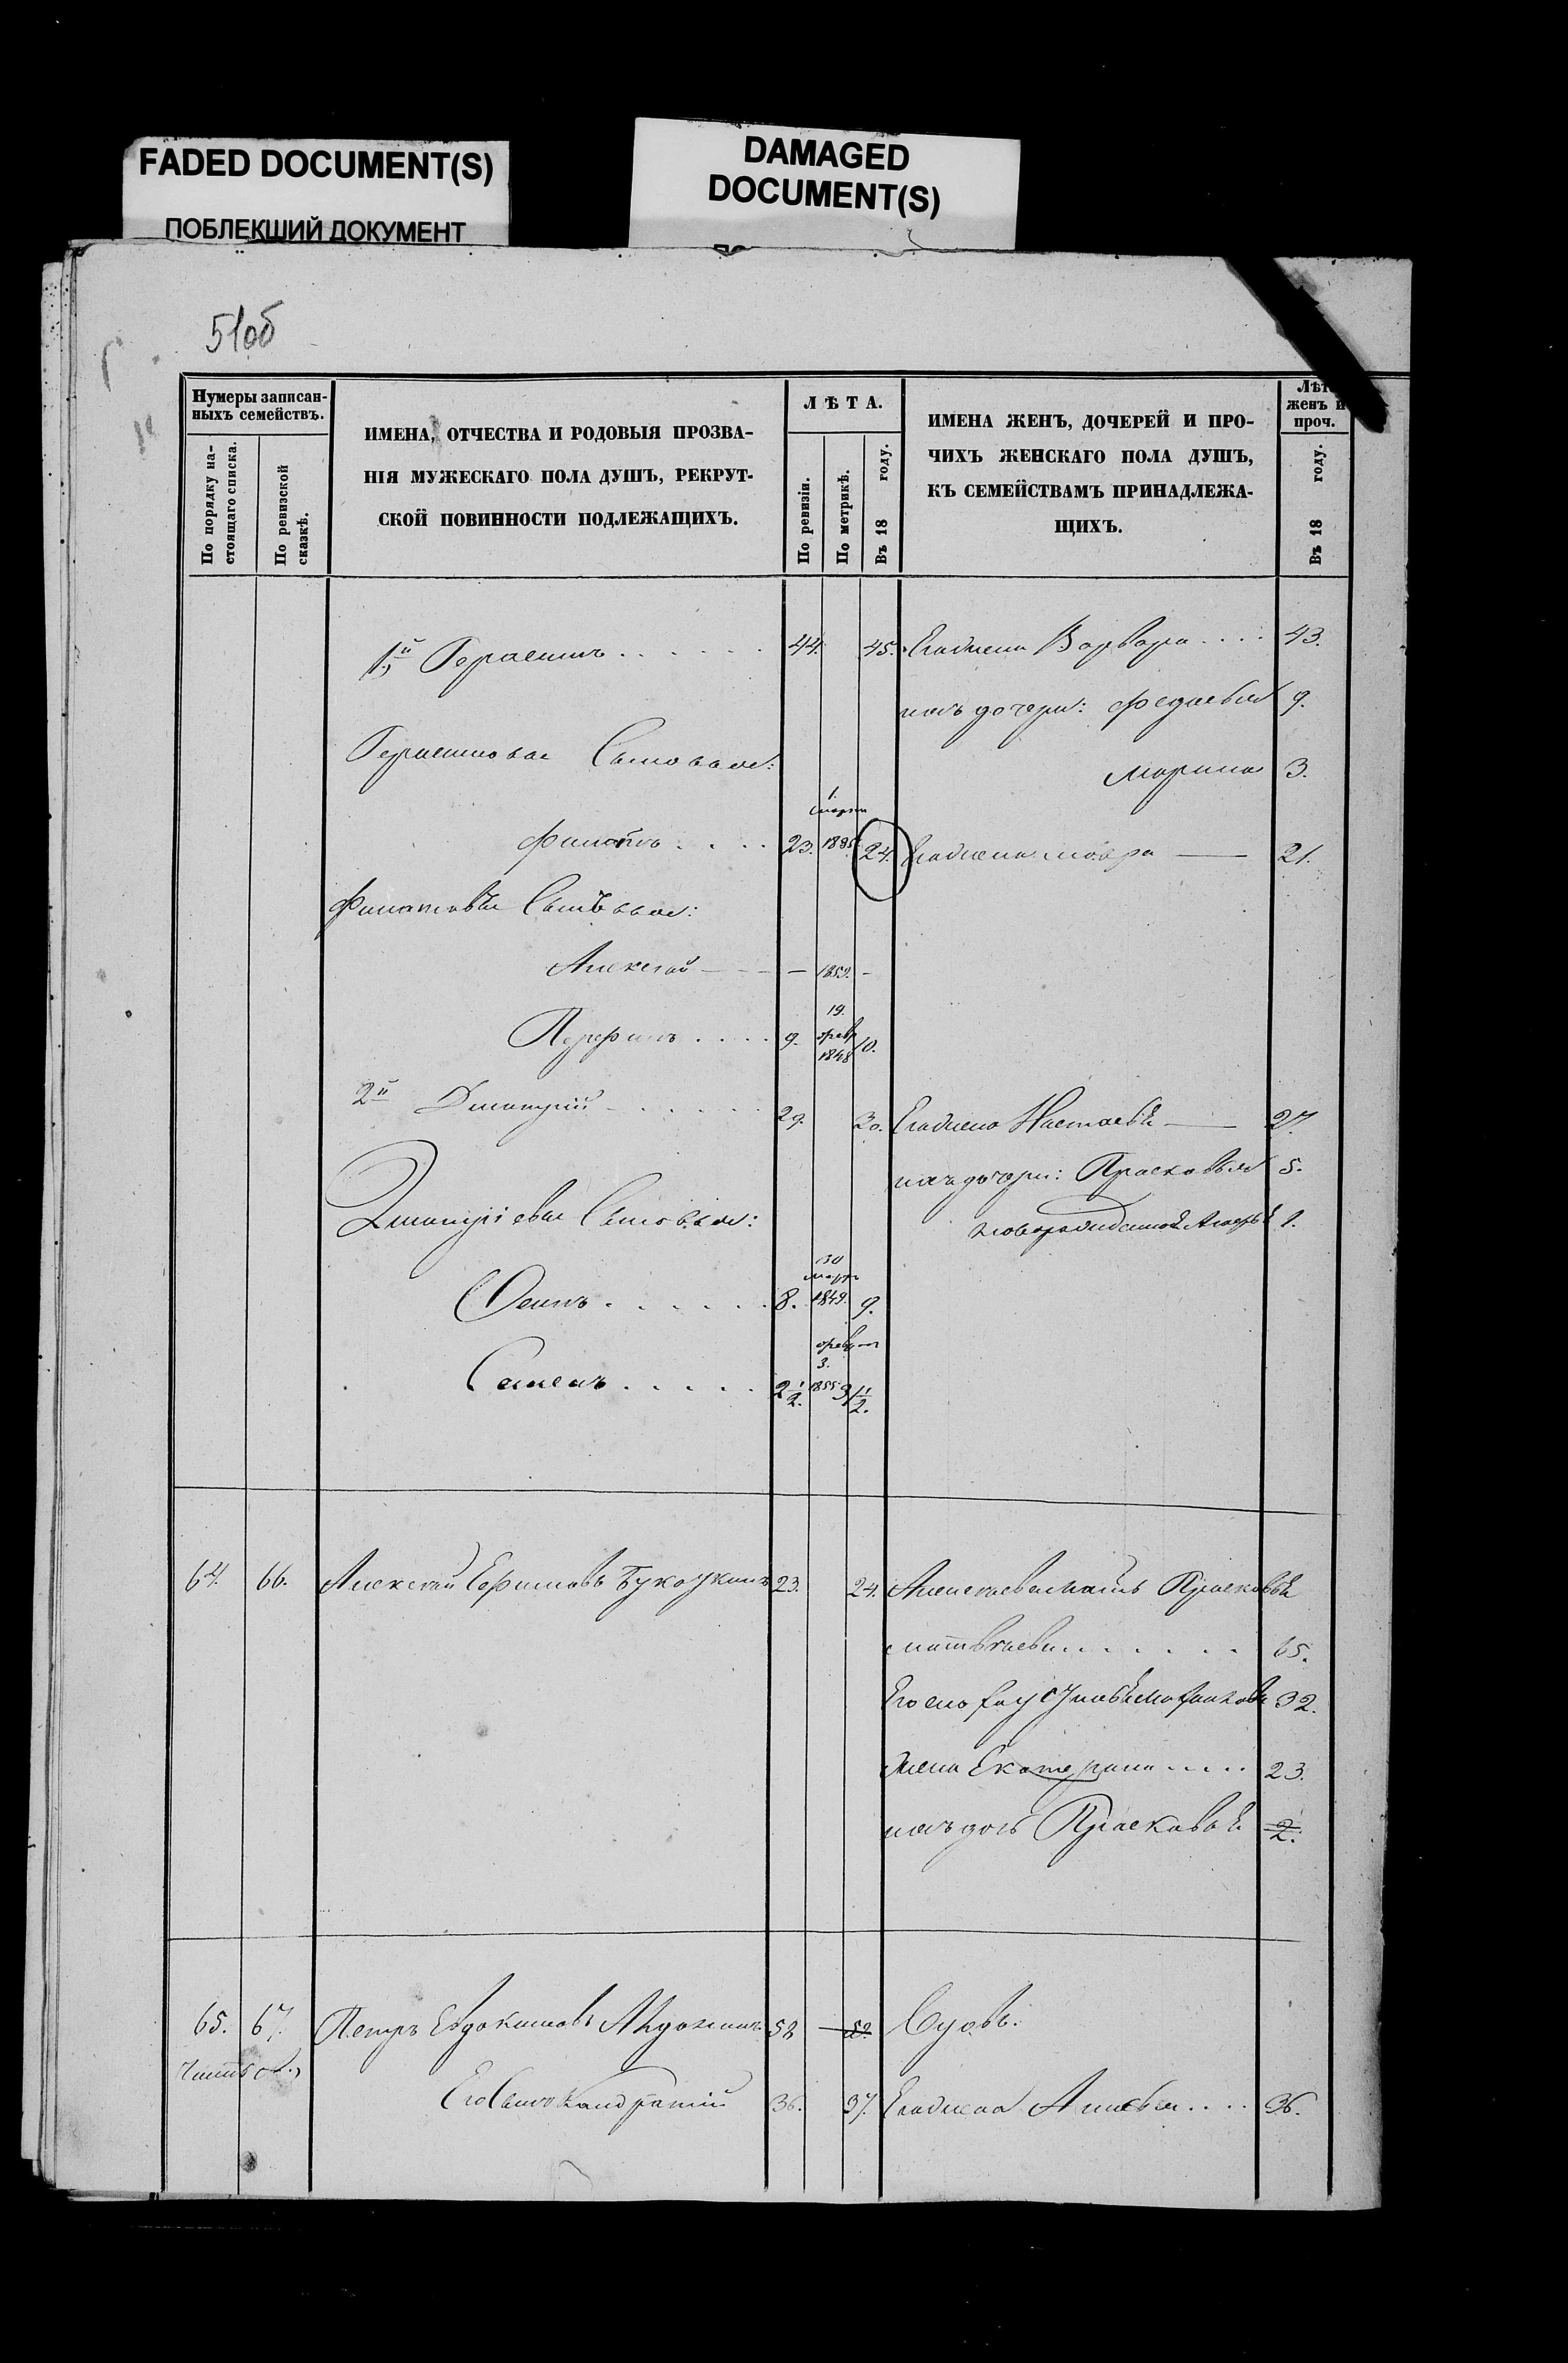 FADED DOCUMENT(S)
ПОБЛЕКШИЙ ДОКУМЕНТ
DAMAGED
DOCUMENT(S)
51об
Нумеры записан-
ныхъ семействъ.
По порядку на-
стоящаго списка.
По ревизской
сказкѣ.
ИМЕНА, ОТЧЕСТВА И РОДОВЫЯ ПРОЗВА-
НІЯ МУЖЕСКАГО ПОЛА ДУШЪ, РЕКРУТ-
СКОЙ ПОВИННОСТИ ПОДЛЕЖАЩИХЪ.
ЛѢТА.
По ревизіи.
По метрикѣ.
Въ 18 году.
ИМЕНА ЖЕНЪ, ДОЧЕРЕЙ И ПРО-
ЧИХЪ ЖЕНСКАГО ПОЛА ДУШЪ,
КЪ СЕМЕЙСТВАМЪ ПРИНАДЛЕЖА-
ЩИХЪ.
Лѣта
женъ и
проч.
Въ 18 году.
1й Герасимъ . . . . . . 44. 45. Егожена Варвара . . . . 43.
ихъ дочери: Федосья 9.
Герасимовы Сыновья:
Марина 3.
1.
марта
Филатъ . . . . 23. 24. Егожена Мавра — 21.
Филатовы Сыновья:
Алексей — — — 1859. -
19.
февр
Перфилъ . . . . 9. 1848 10.
2й Дмитрій - . . . . . . 29. 30. Егожена Настасья — 27.
ихъ дочери: Прасковья 5.
Дмитріевы Сыновья:
1.
30
марта
Осипъ . . . . . . 8. 1849. 9.
февр
3.
Семенъ . . . . . 2 1/2. 1855 3 1/2.
64. 66. Алексей Ефимовъ 23. 24. Алексеева мать Прасковья
Матвеева . . . . . . . 65.
32.
Жена Екатерина . . . . . 23.
ихъ дочь Прасковья 2.
65. 67. Петръ Евдокимовъ 52 — 52. Вдовъ.
Его Сынъ Кандратій 36. 37. Егожена . . . . 36.